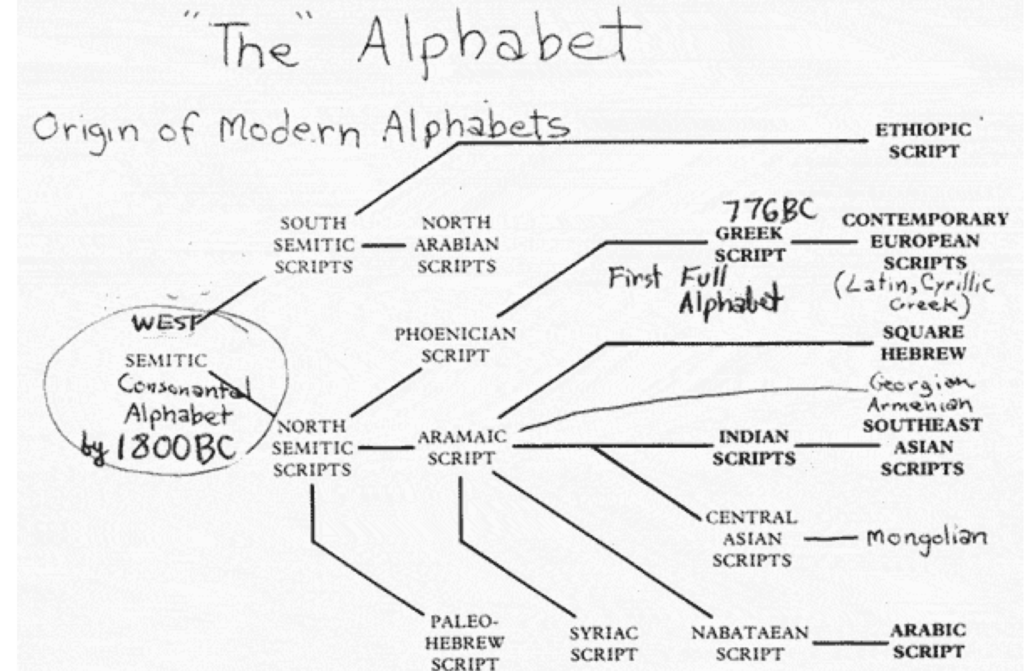 "The" Alphabet
Origin of Modern Alphabets
ETHIOPIC
SCRIPT
SOUTH
SEMITIC
SCRIPTS
NORTH
ARABIAN
SCRIPTS
776BC
GREEK
SCRIPT
First Full
Alphabet
CONTEMPORARY
EUROPEAN
SCRIPTS
(Latin, Cyrillic
Greek)
WEST
SEMITIC
Consonantal
Alphabet
by 1800BC
PHOENICIAN
SCRIPT
SQUARE
HEBREW
Georgian
Armenian
NORTH
SEMITIC
SCRIPTS
ARAMAIC
SCRIPT
INDIAN
SCRIPTS
SOUTHEAST
ASIAN
SCRIPTS
CENTRAL
ASIAN
SCRIPTS
Mongolian
PALEO-
HEBREW
SCRIPT
SYRIAC
SCRIPT
NABATAEAN
SCRIPT
ARABIC
SCRIPT